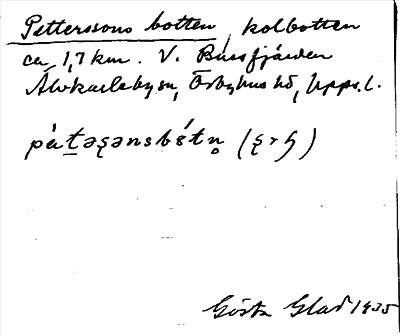 Petterssons botten, kolbotten
ca 1,7 km. V. Bussfjärden
Älvkarleby sn, Örbyhus hd, Upps. l.
pȧtəşənsbɵ́tn̥ (ş > ꞔ)
Gösta Glad 1935